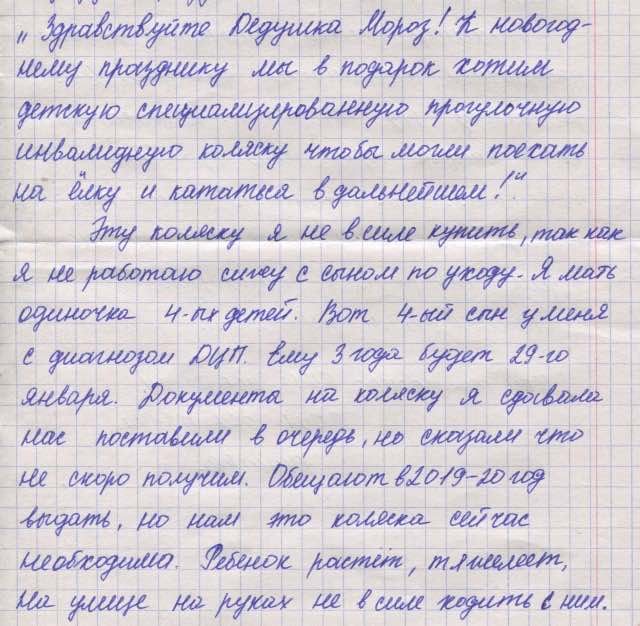 „Здравствуйте Дедушка Мороз! К новогод-
нему празднику мы в подарок хотим
детскую специализированную прогулочную
инвалидную коляску чтобы могли поехать
на ёлку и кататься в дальнейшем!“
Эту коляску я не в силе купить, так как
я не работаю сижу с сыном по уходу. Я мать
одиночка 4-ых детей. Вот 4-ый сын у меня
с диагнозом ДЦП. Ему 3 года будет 29-го
января. Документы на коляску я сдавала
нас поставили в очередь, но сказали что
не скоро получим. Обещают в 2019-20 год
выдать, но нам это коляска сейчас
необходима. Ребенок растёт, тяжелеет,
на улице на руках не в силе ходить с ним.